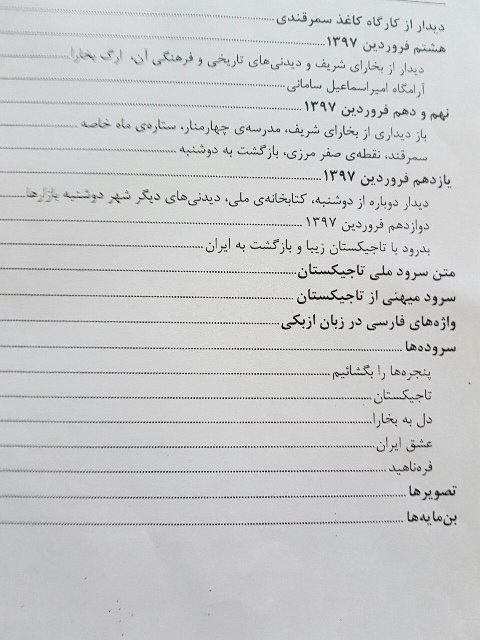 دیدار از کارگاه کاغذ سمرقندی
هشتم فروردین ۱۳۹۷
دیدار از بخارای شریف و دیدنی‌های تاریخی و فرهنگی آن، ارگ بخارا
آرامگاه امیراسماعیل سامانی
نهم و دهم فروردین ۱۳۹۷
باز دیداری از بخارای شریف، مدرسه‌ی چهارمنار، ستاره‌ی ماه خاصه
سمرقند، نقطه‌ی صفر مرزی، بازگشت به دوشنبه
یازدهم فروردین ۱۳۹۷
دیدار دوباره از دوشنبه، کتابخانه‌ی ملی، دیدنی‌های دیگر شهر دوشنبه بازارها
دوازدهم فروردین ۱۳۹۷
بدرود با تاجیکستان زیبا و بازگشت به ایران
متن سرود ملی تاجیکستان
سرود میهنی از تاجیکستان
واژه‌های فارسی در زبان ازبکی
سروده‌ها
پنجره‌ها را بگشائیم
تاجیکستان
دل به بخارا
عشق ایران
فره‌ناهید
تصویرها
بن‌مایه‌ها